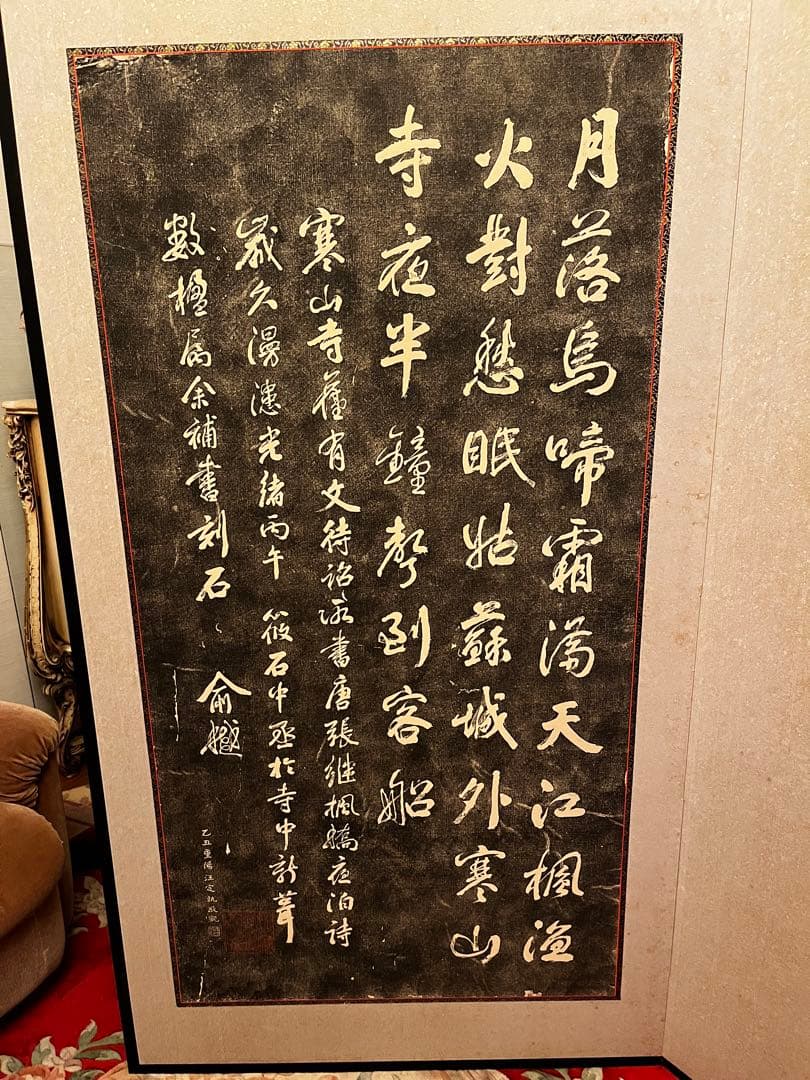 月落烏啼霜满天江楓漁
火對愁眠姑蘇城外寒山
寺夜半鐘聲到客船
寒山寺舊有文待詔所書唐張继楓橋夜泊詩
歲久漫漶光绪丙午筱石中丞於寺中新葺
數楹属余補書刻石
俞樾
乙丑重陽汪定